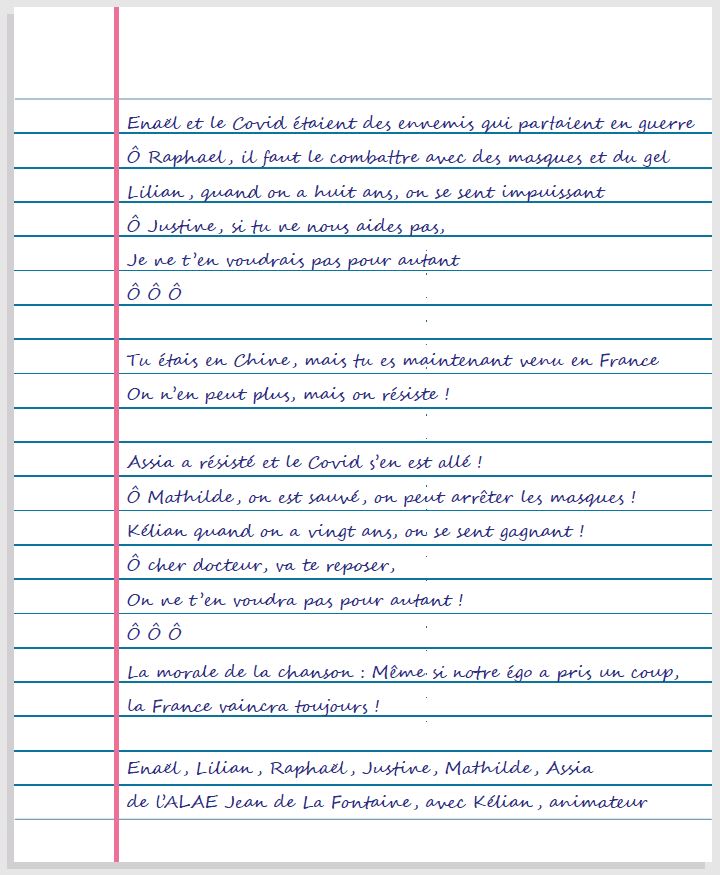 Enaël et le Covid étaient des ennemis qui partaient en guerre
Ô Raphael, il faut le combattre avec des masques et du gel
Lilian, quand on a huit ans, on se sent impuissant
Ô Justine, si tu ne nous aides pas,
Je ne t'en voudrais pas pour autant
Ô Ô Ô
Tu étais en Chine, mais tu es maintenant venu en France
On n'en peut plus, mais on résiste !
Assia a résisté et le Covid s'en est allé !
Ô Mathilde, on est sauvé, on peut arrêter les masques !
Kélian quand on a vingt ans, on se sent gagnant !
Ô cher docteur, va te reposer,
On ne t'en voudra pas pour autant !
Ô Ô Ô
La morale de la chanson : Même si notre égo a pris un coup,
la France vaincra toujours !
Enaël, Lilian, Raphaël, Justine, Mathilde, Assia
de l'ALAE Jean de La Fontaine, avec Kélian, animateur